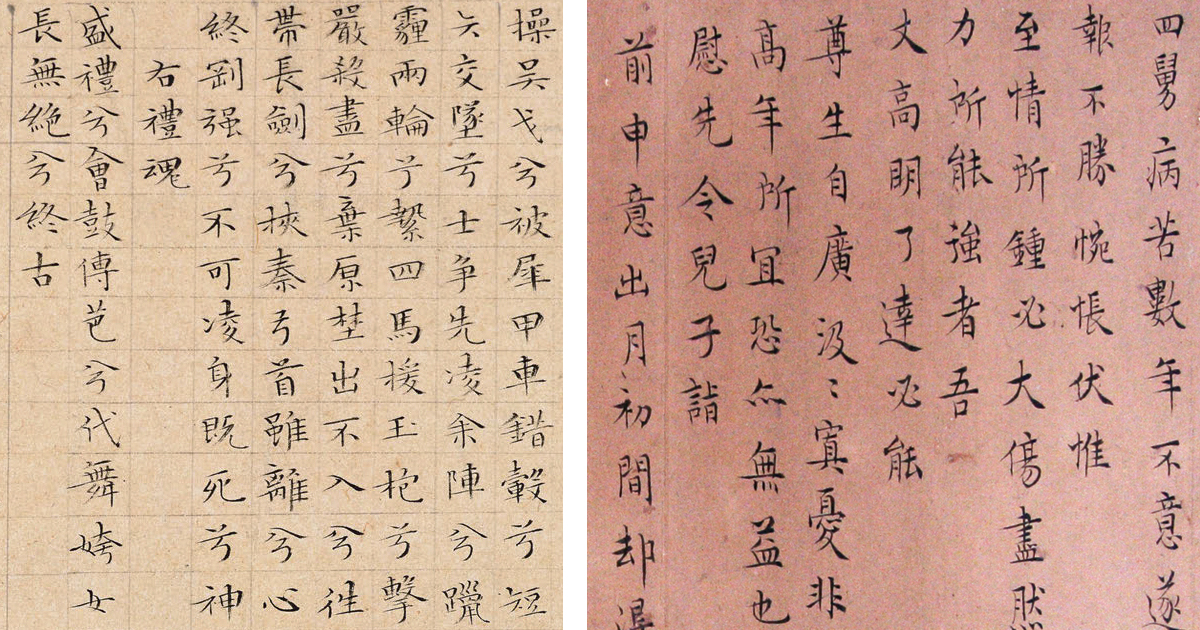 操吴戈兮被犀甲車錯轂兮短
矢交墜兮士争先凌余陣兮躐
霾兩輪兮縶四馬援玉枹兮擊
嚴殺盡兮棄原埜出不入兮徃
帶長劍兮挾秦弓首雖離兮心
終剛强兮不可凌身既死兮神
右禮魂
盛禮兮會鼓傳芭兮代舞姱女
長無絶兮終古
四舅病苦數年不意遂
報不勝惋悵伏惟
至情所鍾必大傷盡然
力所能強者吾
丈高明了達必能
尊生自廣汲〻寘憂非
高年所宜恐亦無益也
慰先令兒子詣
前申意出月初間却